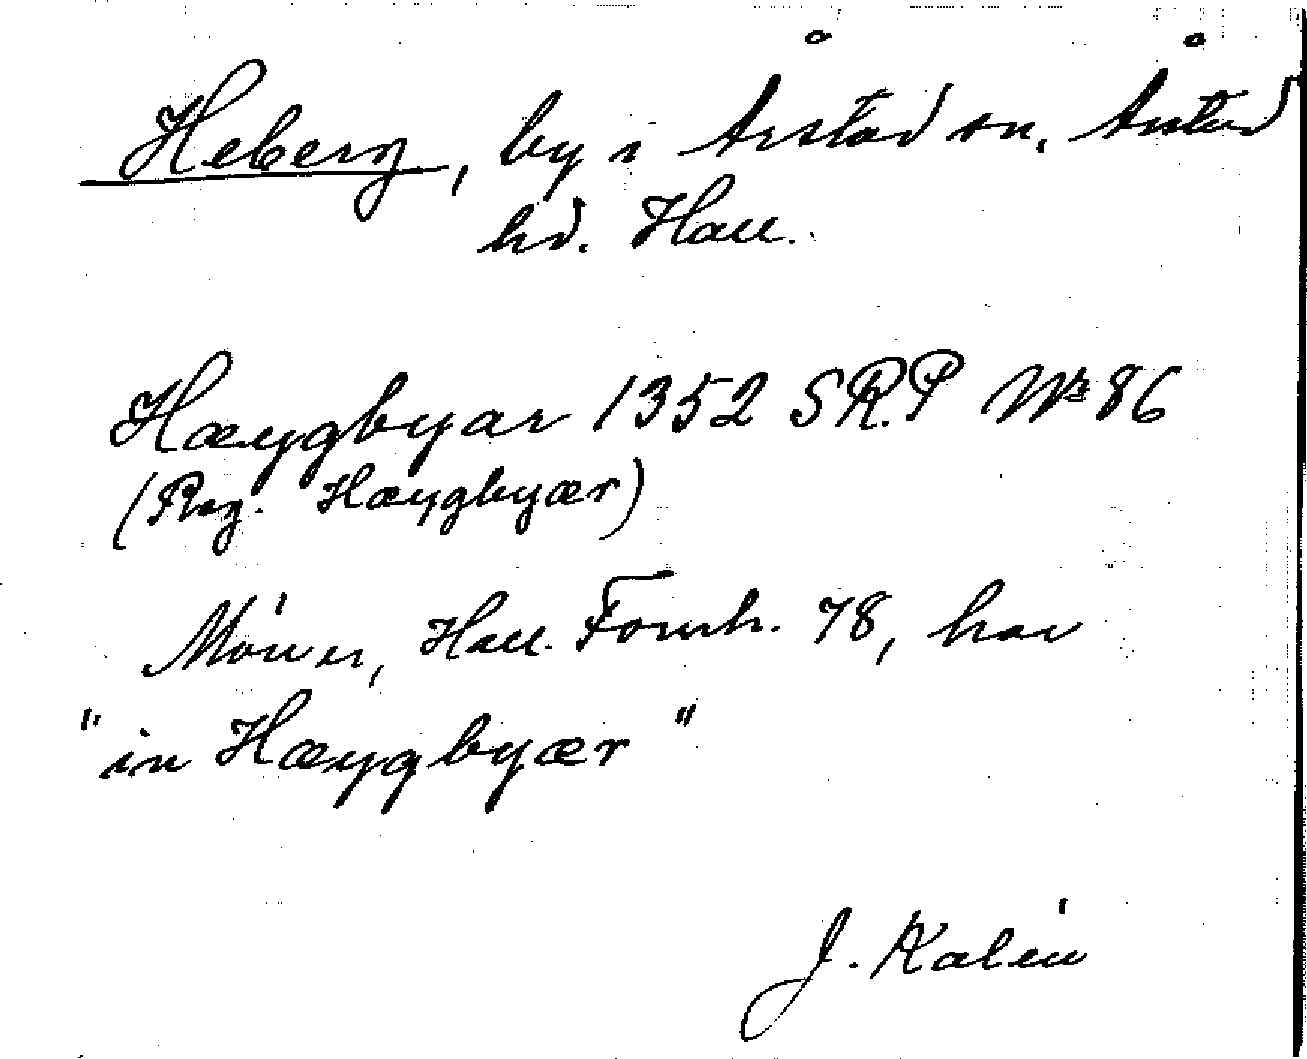 Heberg, by i Årstad sn. Årstad
hd. Hall.
Hæygbyar 1352 SRP Nr 86
(Reg. Hæygbyær)
Hall. Fornh. 78, har
"in Hæygbyær"
J. Kalén